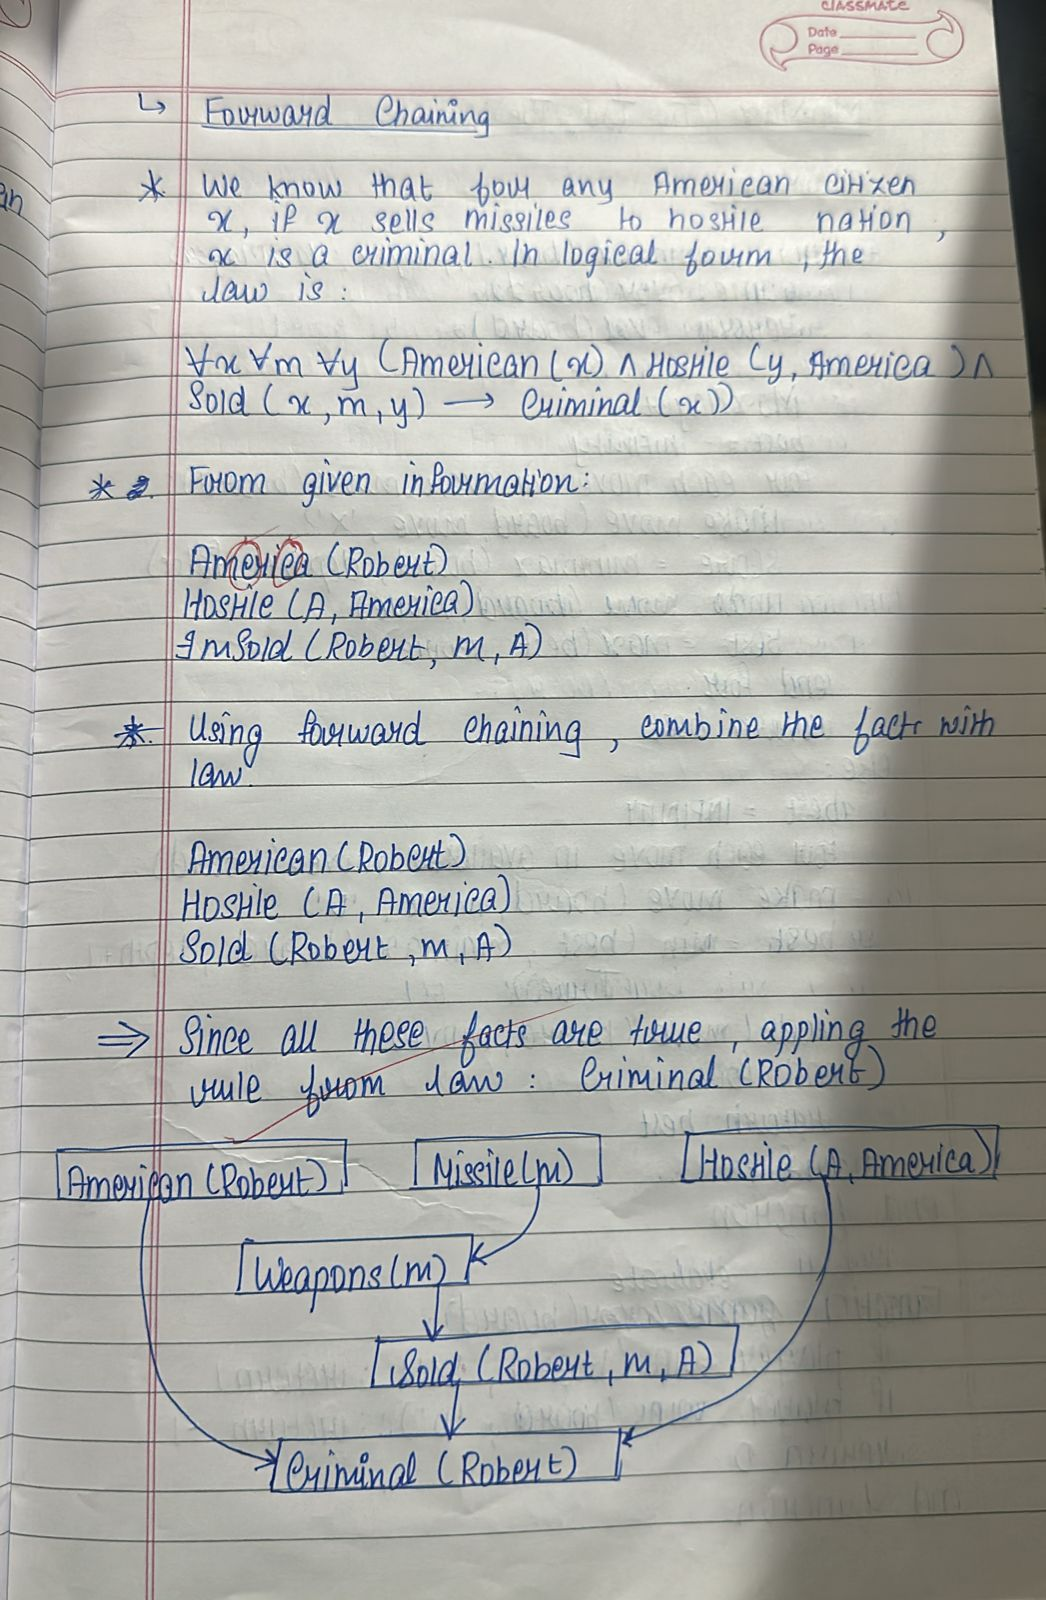 classmate
Date
Page
↳ Forward Chaining
* We know that for any American citizen
x, if x sells missiles to hostile nation,
x is a criminal. In logical form, the
law is:
∀x ∀m ∀y (American(x) ∧ Hostile(y, America) ∧
Sold(x, m, y) → Criminal(x))
* From given information:
America (Robert)
Hostile (A, America)
∃mSold (Robert, m, A)
* Using forward chaining, combine the facts with
law.
American (Robert)
Hostile (A, America)
Sold (Robert, m, A)
⇒ Since all these facts are true, appling the
rule from law: Criminal (Robert)
American (Robert) Missile(m) Hostile (A, America)
Weapons(m)
Sold (Robert, m, A)
Criminal (Robert)